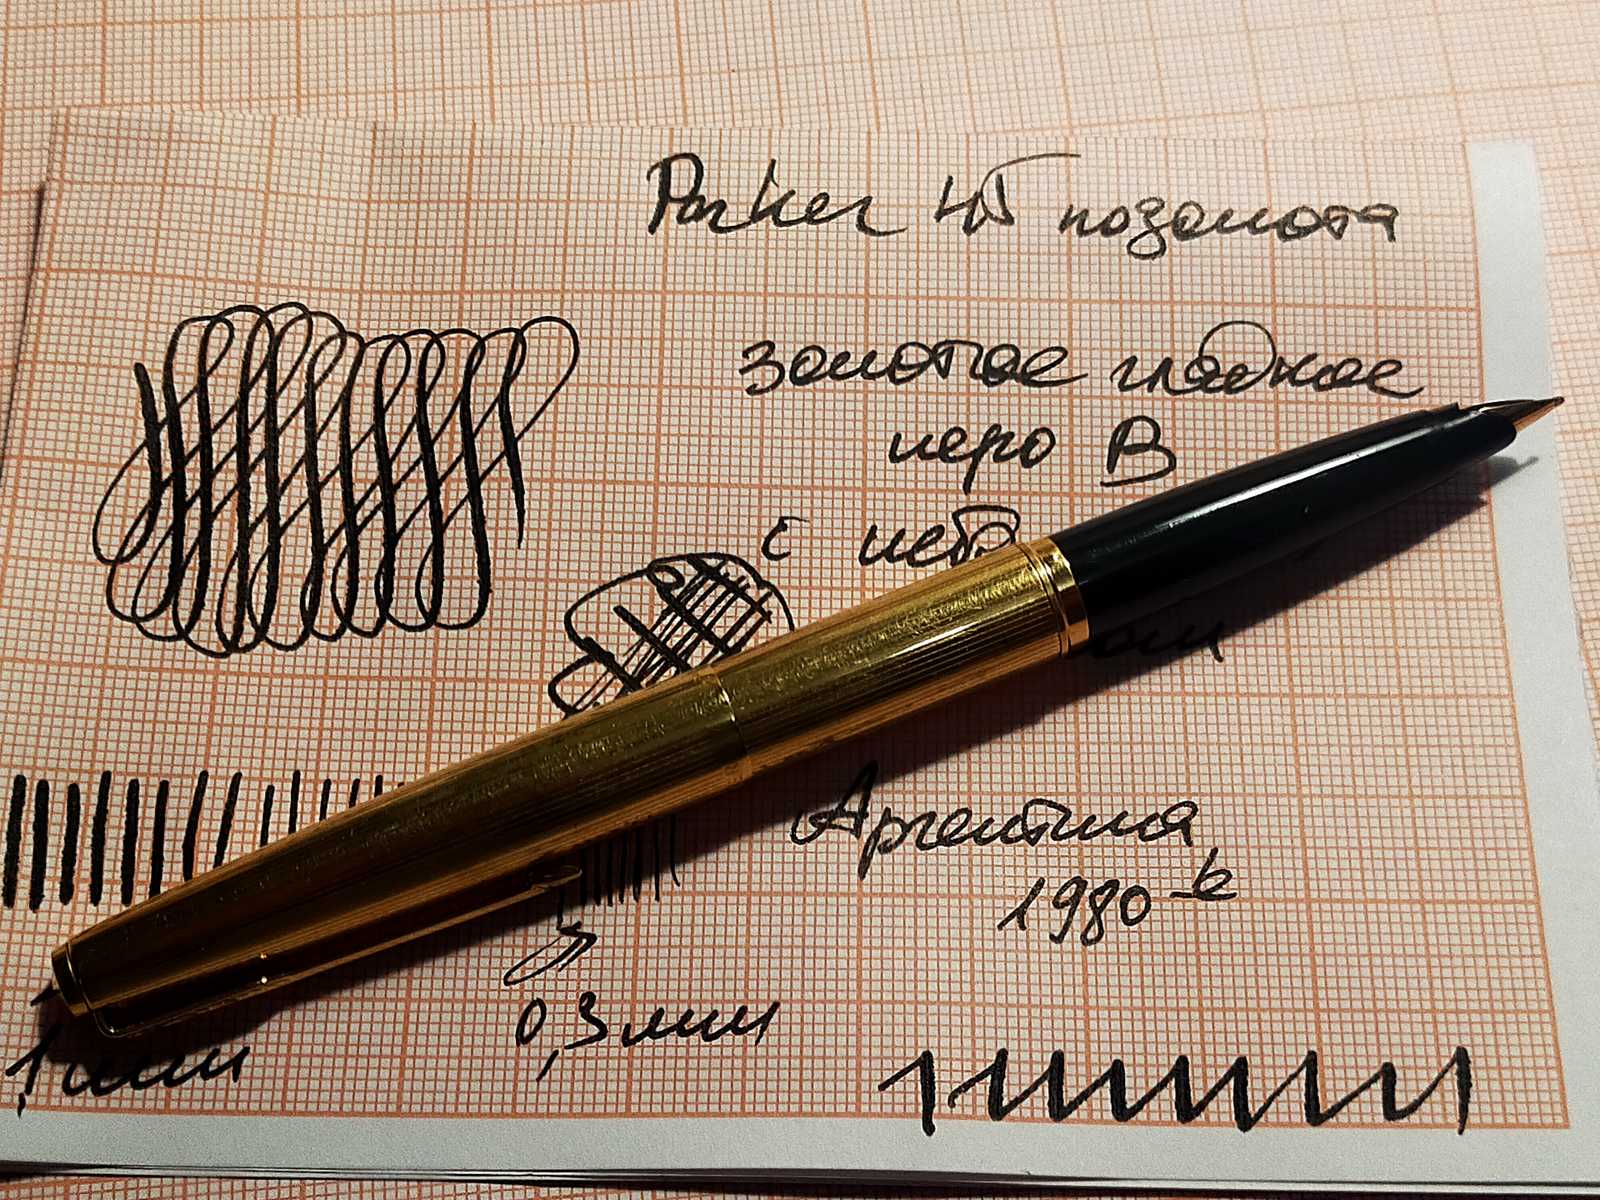 Parker 45 позолота
золотое гладкое
перо В
с
Аргентина
1980-е
0,3мм
1мм